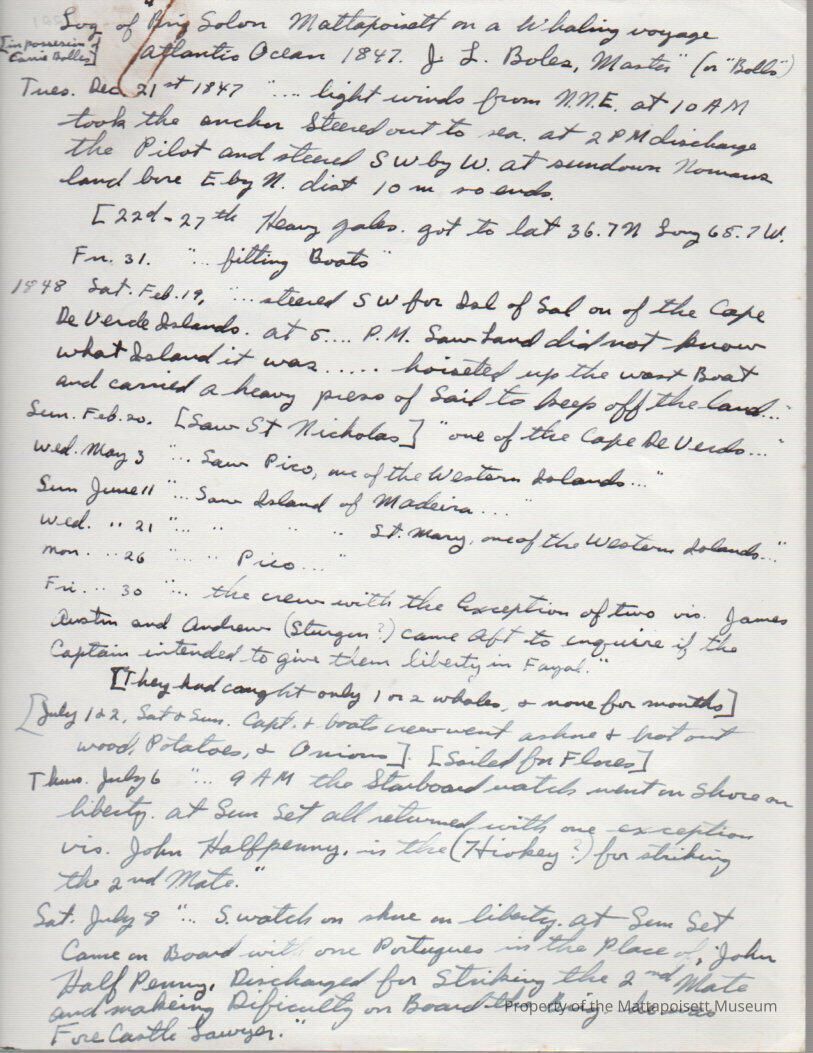 Log of "Brig Solon Mattapoisett on a Whaling voyage
[in possession
Carrie Bolles]
Atlantic Ocean 1847. J. L. Boles, Master" (or "Bolls")
Tues. Dec. 21st 1847 ".... light winds from N.N.E. at 10 AM
took the anchor Steered out to sea. at 2 PM discharge
the Pilot and steered S W by W. at sundown Nomans
land bore E by N. dist 10 m so ends.
[22d - 27th Heavy gales. got to lat 36.7 N Long 65.7 W.
Fri. 31. "... fitting Boats"
1848 Sat. Feb. 19, "... steered S W for Isl of Sal on of the Cape
De Verde Islands. at 5.... P.M. Saw Land did not know
what Island it was ..... hoisted up the wast Boat
and carried a heavy press of Sail to keep off the land..."
Sun. Feb. 20. [Saw St Nicholas] "one of the Cape De Verds..."
Wed. May 3 "... Saw Pico, one of the Western Islands..."
Sun June 11 "... Saw Island of Madeira ... "
Wed. " 21 "... " " " St. Mary, one of the Western Islands..."
Mon. .. 26 "... .. Pico ... "
Fri. .. 30 "... the crew with the Exception of two vis. James
Austin and Andrew (Sturgin?) came Aft to enquire if the
Captain intended to give them liberty in Fayal."
[They had caught only 1 or 2 whales, & none for months]
[July 1 & 2, Sat & Sun. Capt. & boats crew went ashore & brot out
wood, Potatoes, & Onions]. [Sailed for Flores]
Thurs. July 6 "... 9 AM the Starboard watch went on Shore on
liberty. at Sun Set all returned with one exception
vis. John Halfpenny, in the (Hickey?) for striking
the 2nd Mate."
Sat. July 8 "... S. watch on shore on liberty. at Sun Set
Came on Board with one Portugues in the Place of, John
Half Penny, Discharged for Striking the 2nd Mate
and makeing Dificulty on Board the
Fore Castle Lawyer."
Property of the Mattapoisett Museum